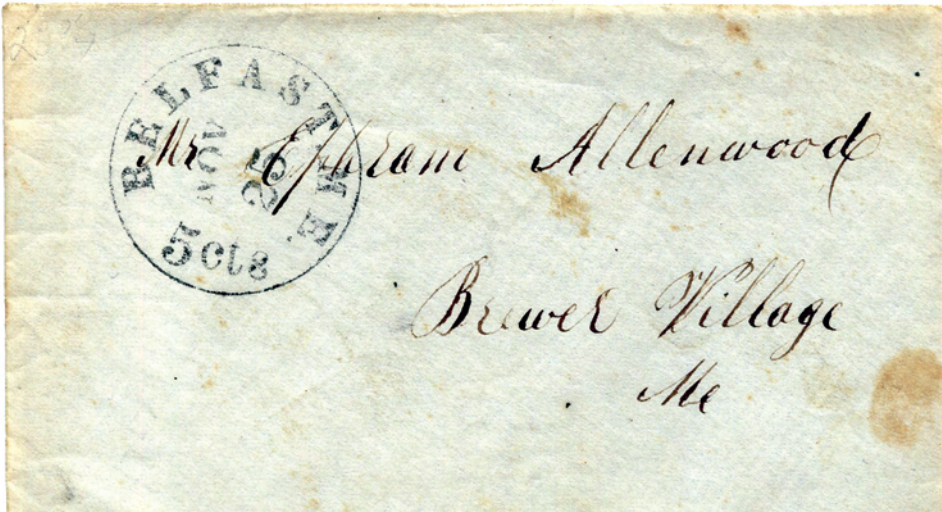 BELFAST ME
NOV
25
5 cts
Mr Ephram Allenwood
Brewer Village
Me